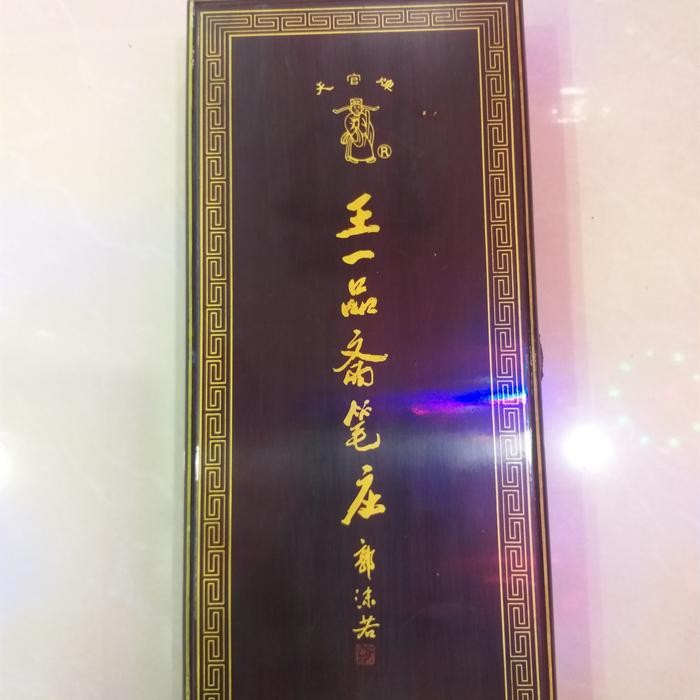 天官牌
®
王一品斋笔庄
郭沫若